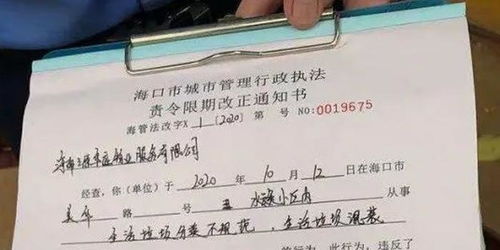 海口市城市管理行政执法
责令限期改正通知书
海管法改字X 1 [2020] 第 号 NO:0019675
物业服务有限公司
经查,你(单位)于 2020 年 10 月 12 日在海口市
路 号 小区内 从事
生活垃圾分类不规范,生活垃圾混装
的行为。此行为,违反了